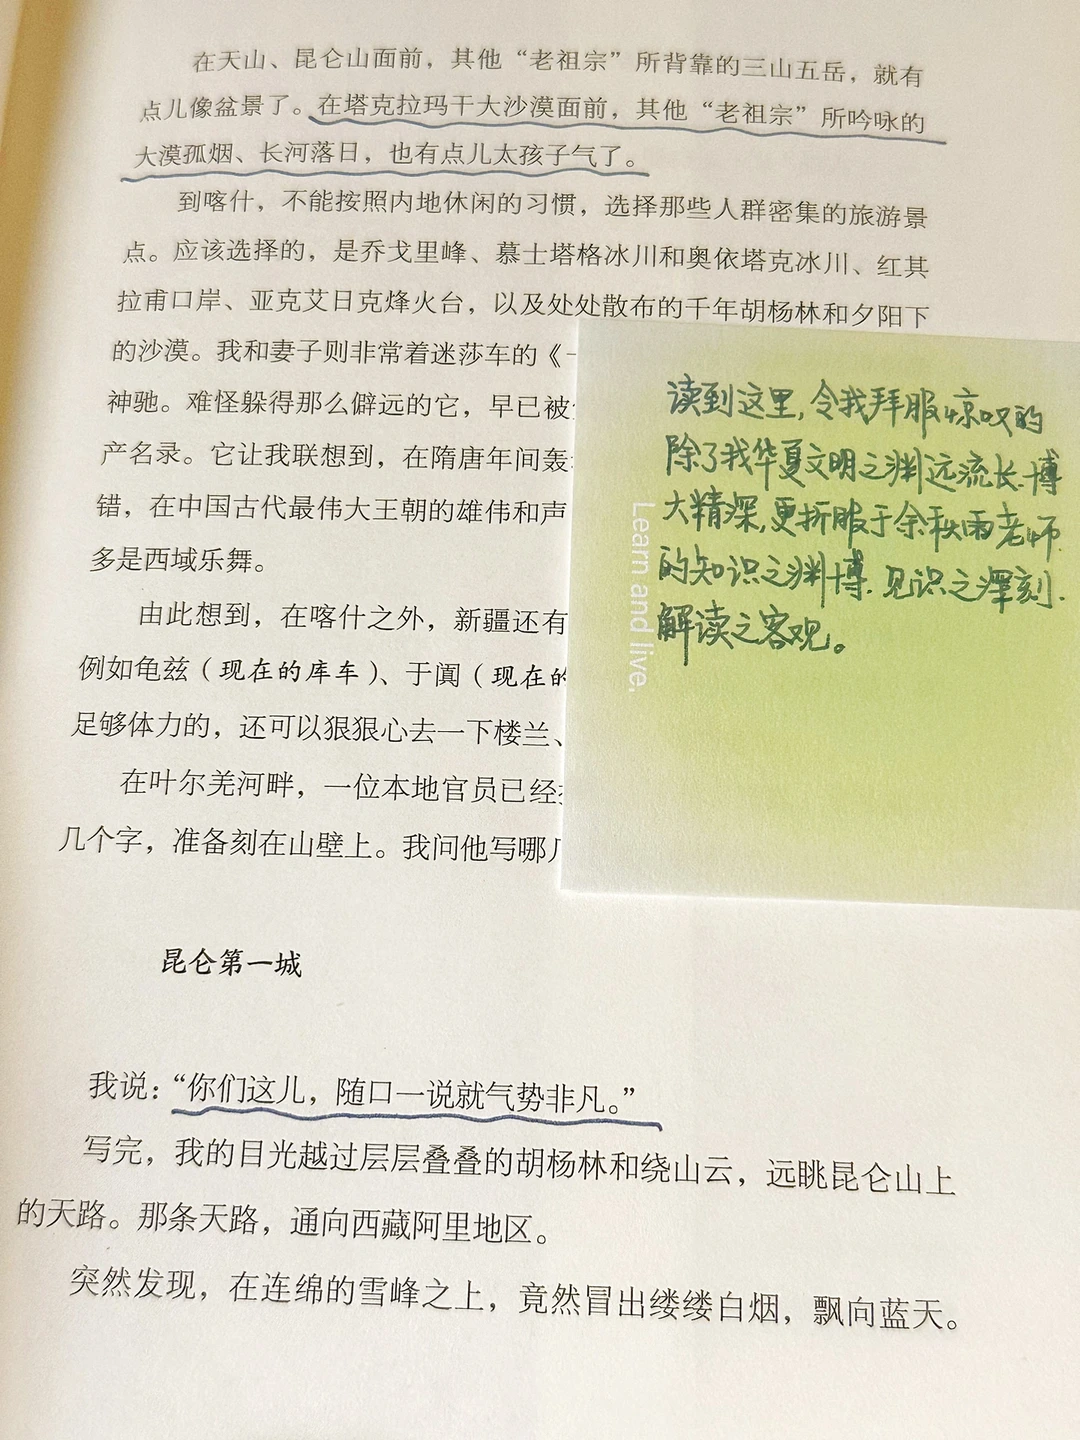 在天山、昆仑山面前，其他“老祖宗”所背靠的三山五岳，就有
点儿像盆景了。在塔克拉玛干大沙漠面前，其他“老祖宗”所吟咏的
大漠孤烟、长河落日，也有点儿太孩子气了。
到喀什，不能按照内地休闲的习惯，选择那些人群密集的旅游景
点。应该选择的，是乔戈里峰、慕士塔格冰川和奥依塔克冰川、红其
拉甫口岸、亚克艾日克烽火台，以及处处散布的千年胡杨林和夕阳下
的沙漠。我和妻子则非常着迷莎车的《
神驰。难怪躲得那么僻远的它，早已被
产名录。它让我联想到，在隋唐年间轰
错，在中国古代最伟大王朝的雄伟和声
多是西域乐舞。
由此想到，在喀什之外，新疆还有
例如龟兹（现在的库车）、于阗（现在的
足够体力的，还可以狠狠心去一下楼兰、
在叶尔羌河畔，一位本地官员已经
几个字，准备刻在山壁上。我问他写哪
读到这里，令我拜服惊叹的
除了我华夏文明之渊远流长、博
大精深，更折服于余秋雨老师
的知识之渊博、见识之深刻、
解读之客观。
Learn and live.
昆仑第一城
我说：“你们这儿，随口一说就气势非凡。”
写完，我的目光越过层层叠叠的胡杨林和绕山云，远眺昆仑山上
的天路。那条天路，通向西藏阿里地区。
突然发现，在连绵的雪峰之上，竟然冒出缕缕白烟，飘向蓝天。